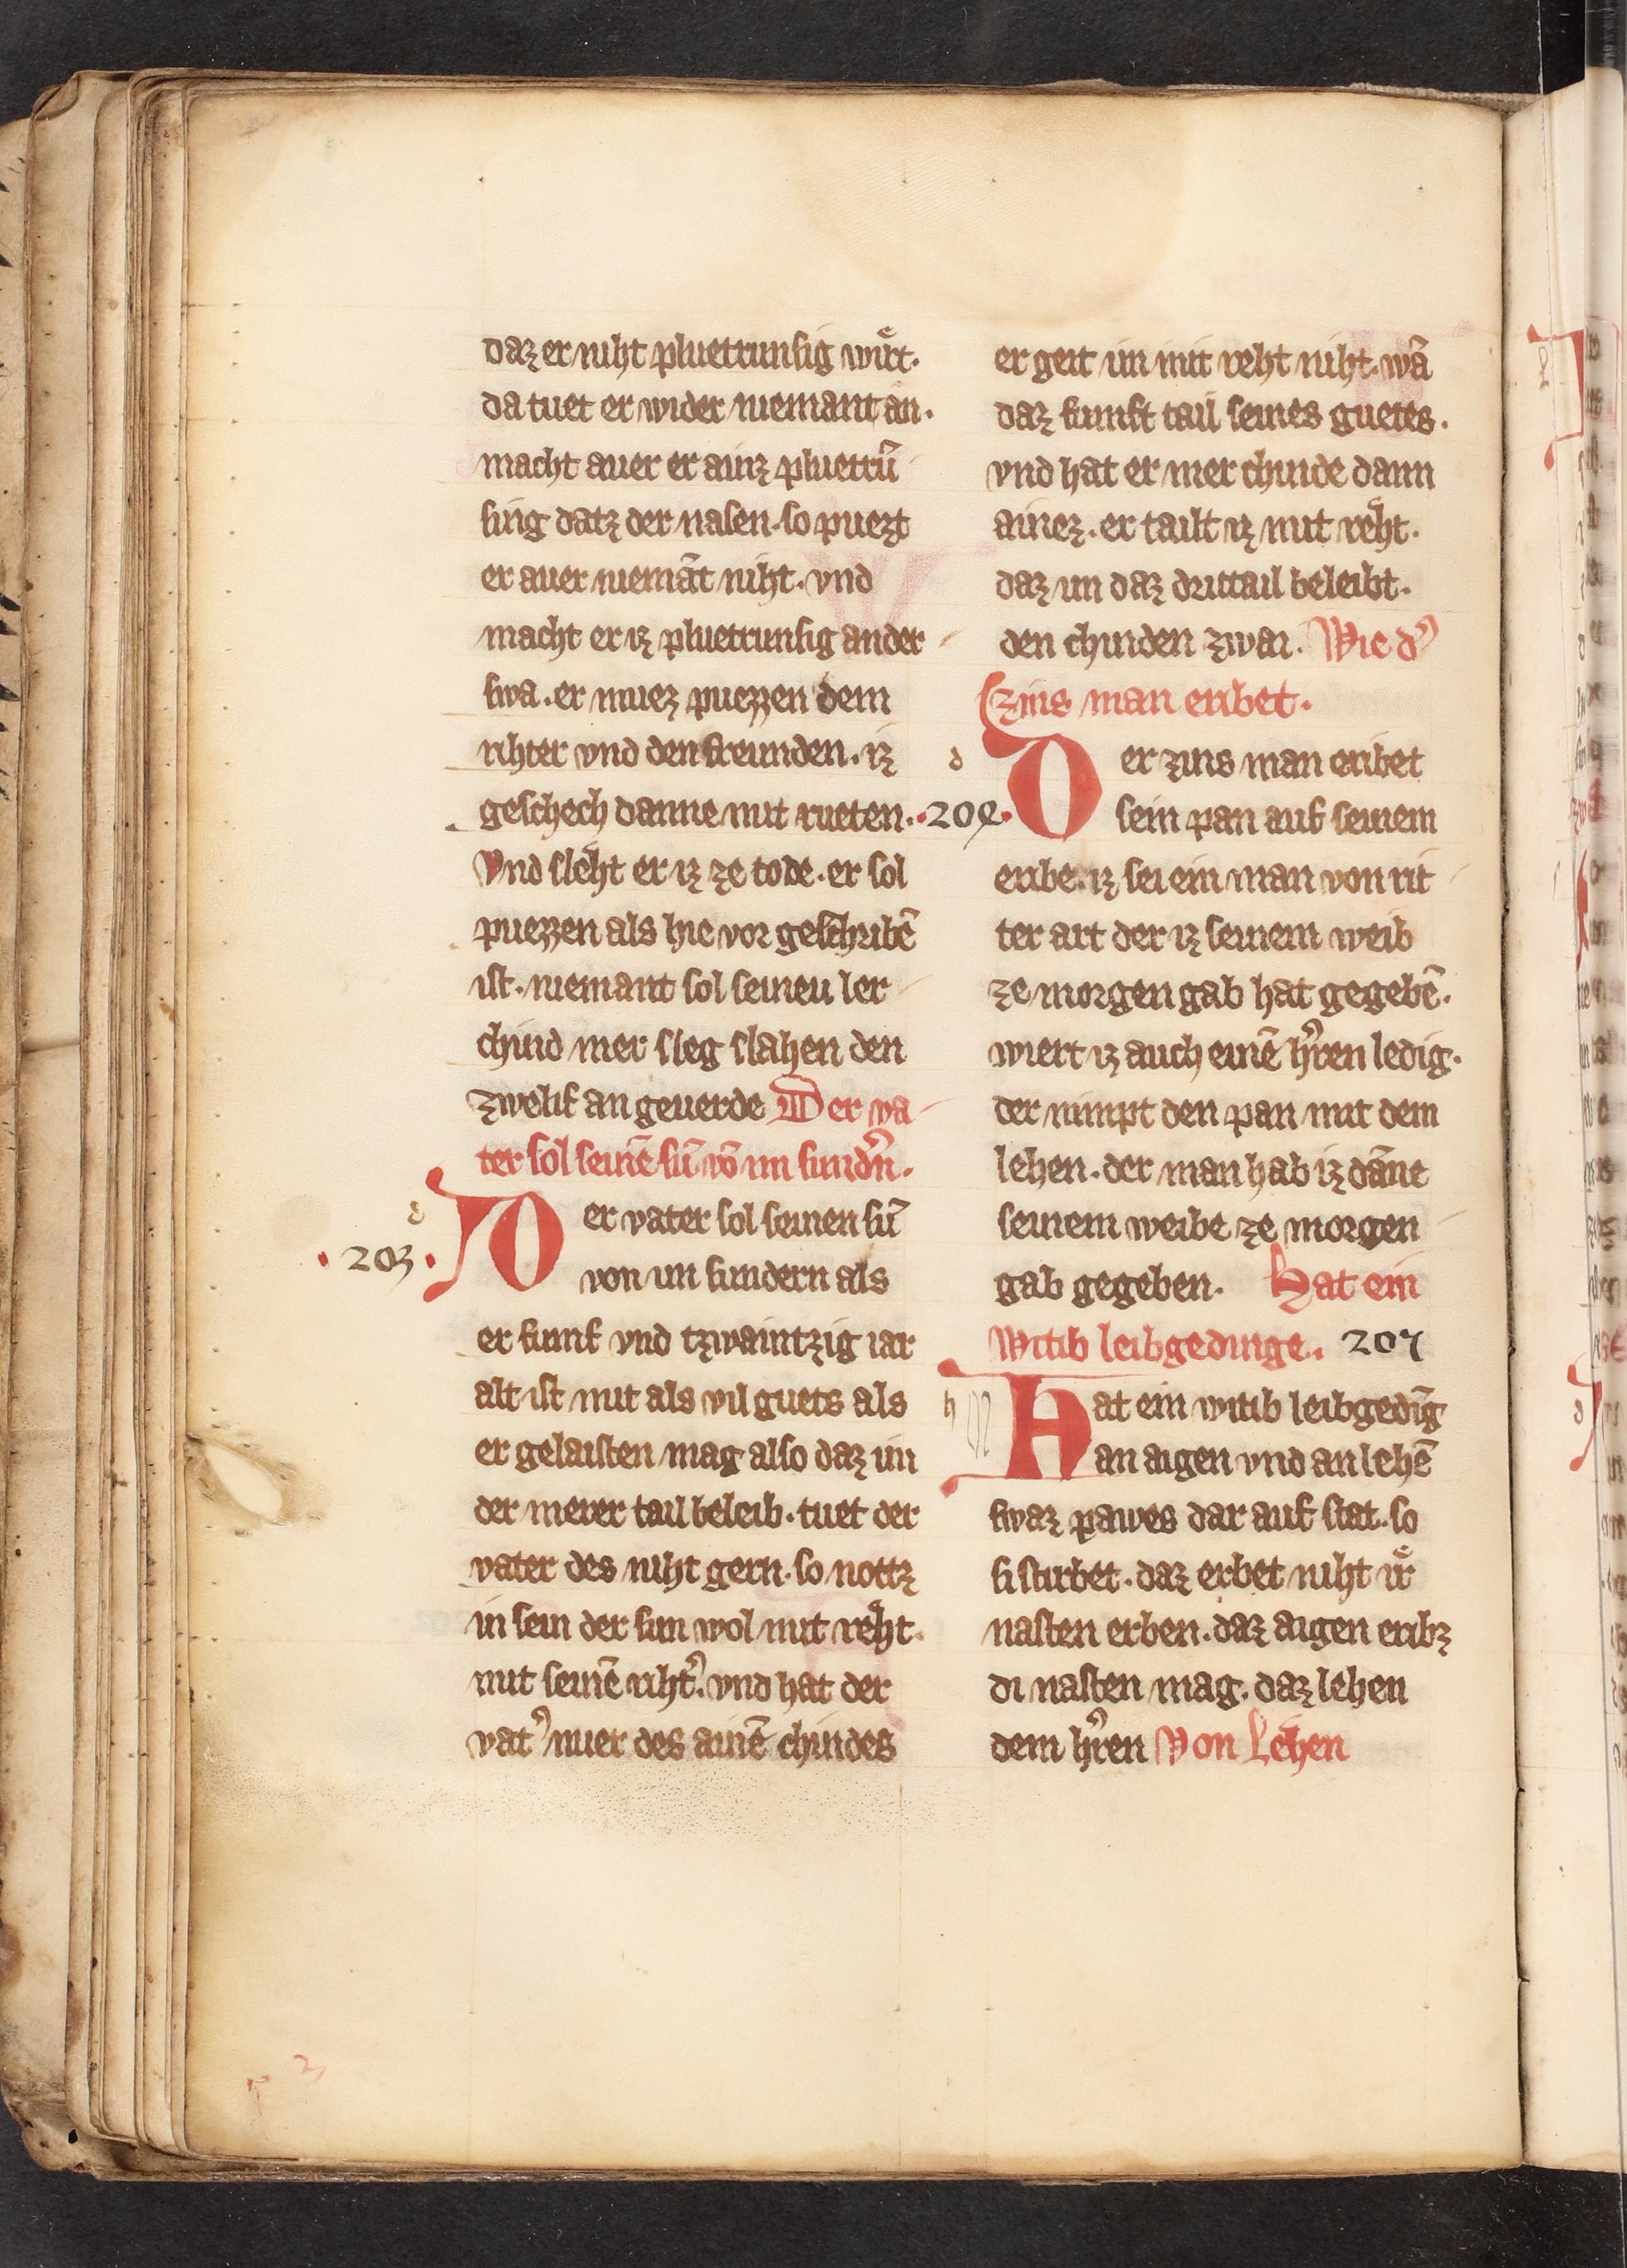 daz er niht pluetrunsig wuͤrt.
da tuet er wider niemant an.
macht auer er ainz pluetrū
sing datz der nasen. so puezt
er auer niemāt niht. vnd
macht er iz pluetrunsig ander
swa. er muez puezzen dem
rihter vnd den freunden. iz
geschech danne mit rueten.
Vnd sleht er iz ze tode. er sol
puezzen als hie vor geschribē
ist. niemant sol seineu ler
chind mer sleg slahen den
zwelif an geuerde Der va
ter sol seinē sū vō im sundn̉.
d Der vater sol seinen sū
203. von im sundern als
er fumf vnd tzwaintzig iar
alt ist mit als vil guets als
er gelaisten mag also daz im
der merer tail beleib. tuet der
vater des niht gern. so nottz
in sein der sun wol mit reht.
mit seinē riht̉. vnd hat der
vat̉ nuer des ainē chindes
er geit im mit reht niht. wā
daz funft tail seines guetes.
vnd hat er mer chinde dann
ainez. er tailt iz mit reht.
daz im daz drittail beleibt.
den chinden zwai. Wie d̉
zins man eribet.
d Der zins man eribet
.204. sein pan auf seinem
eribe. iz sei ein man von rit
ter art der iz seinem weib
ze morgen gab hat gegebē.
wiert iz auch einē hr̉ren ledig.
der nimpt den pan mit dem
lehen. der man hab iz dāne
seinem weibe ze morgen
gab gegeben. Hat ein
Witib leibgedinge. 205
h Hat ein witib leibgedīg
an aigen vnd an lehē
swaz pawes dar auf stat. so
si stirbet. daz erbet niht ir
nasten erben. daz aigen eribz
di nasten mag. daz lehen
dem hr̉ren Von Lehen